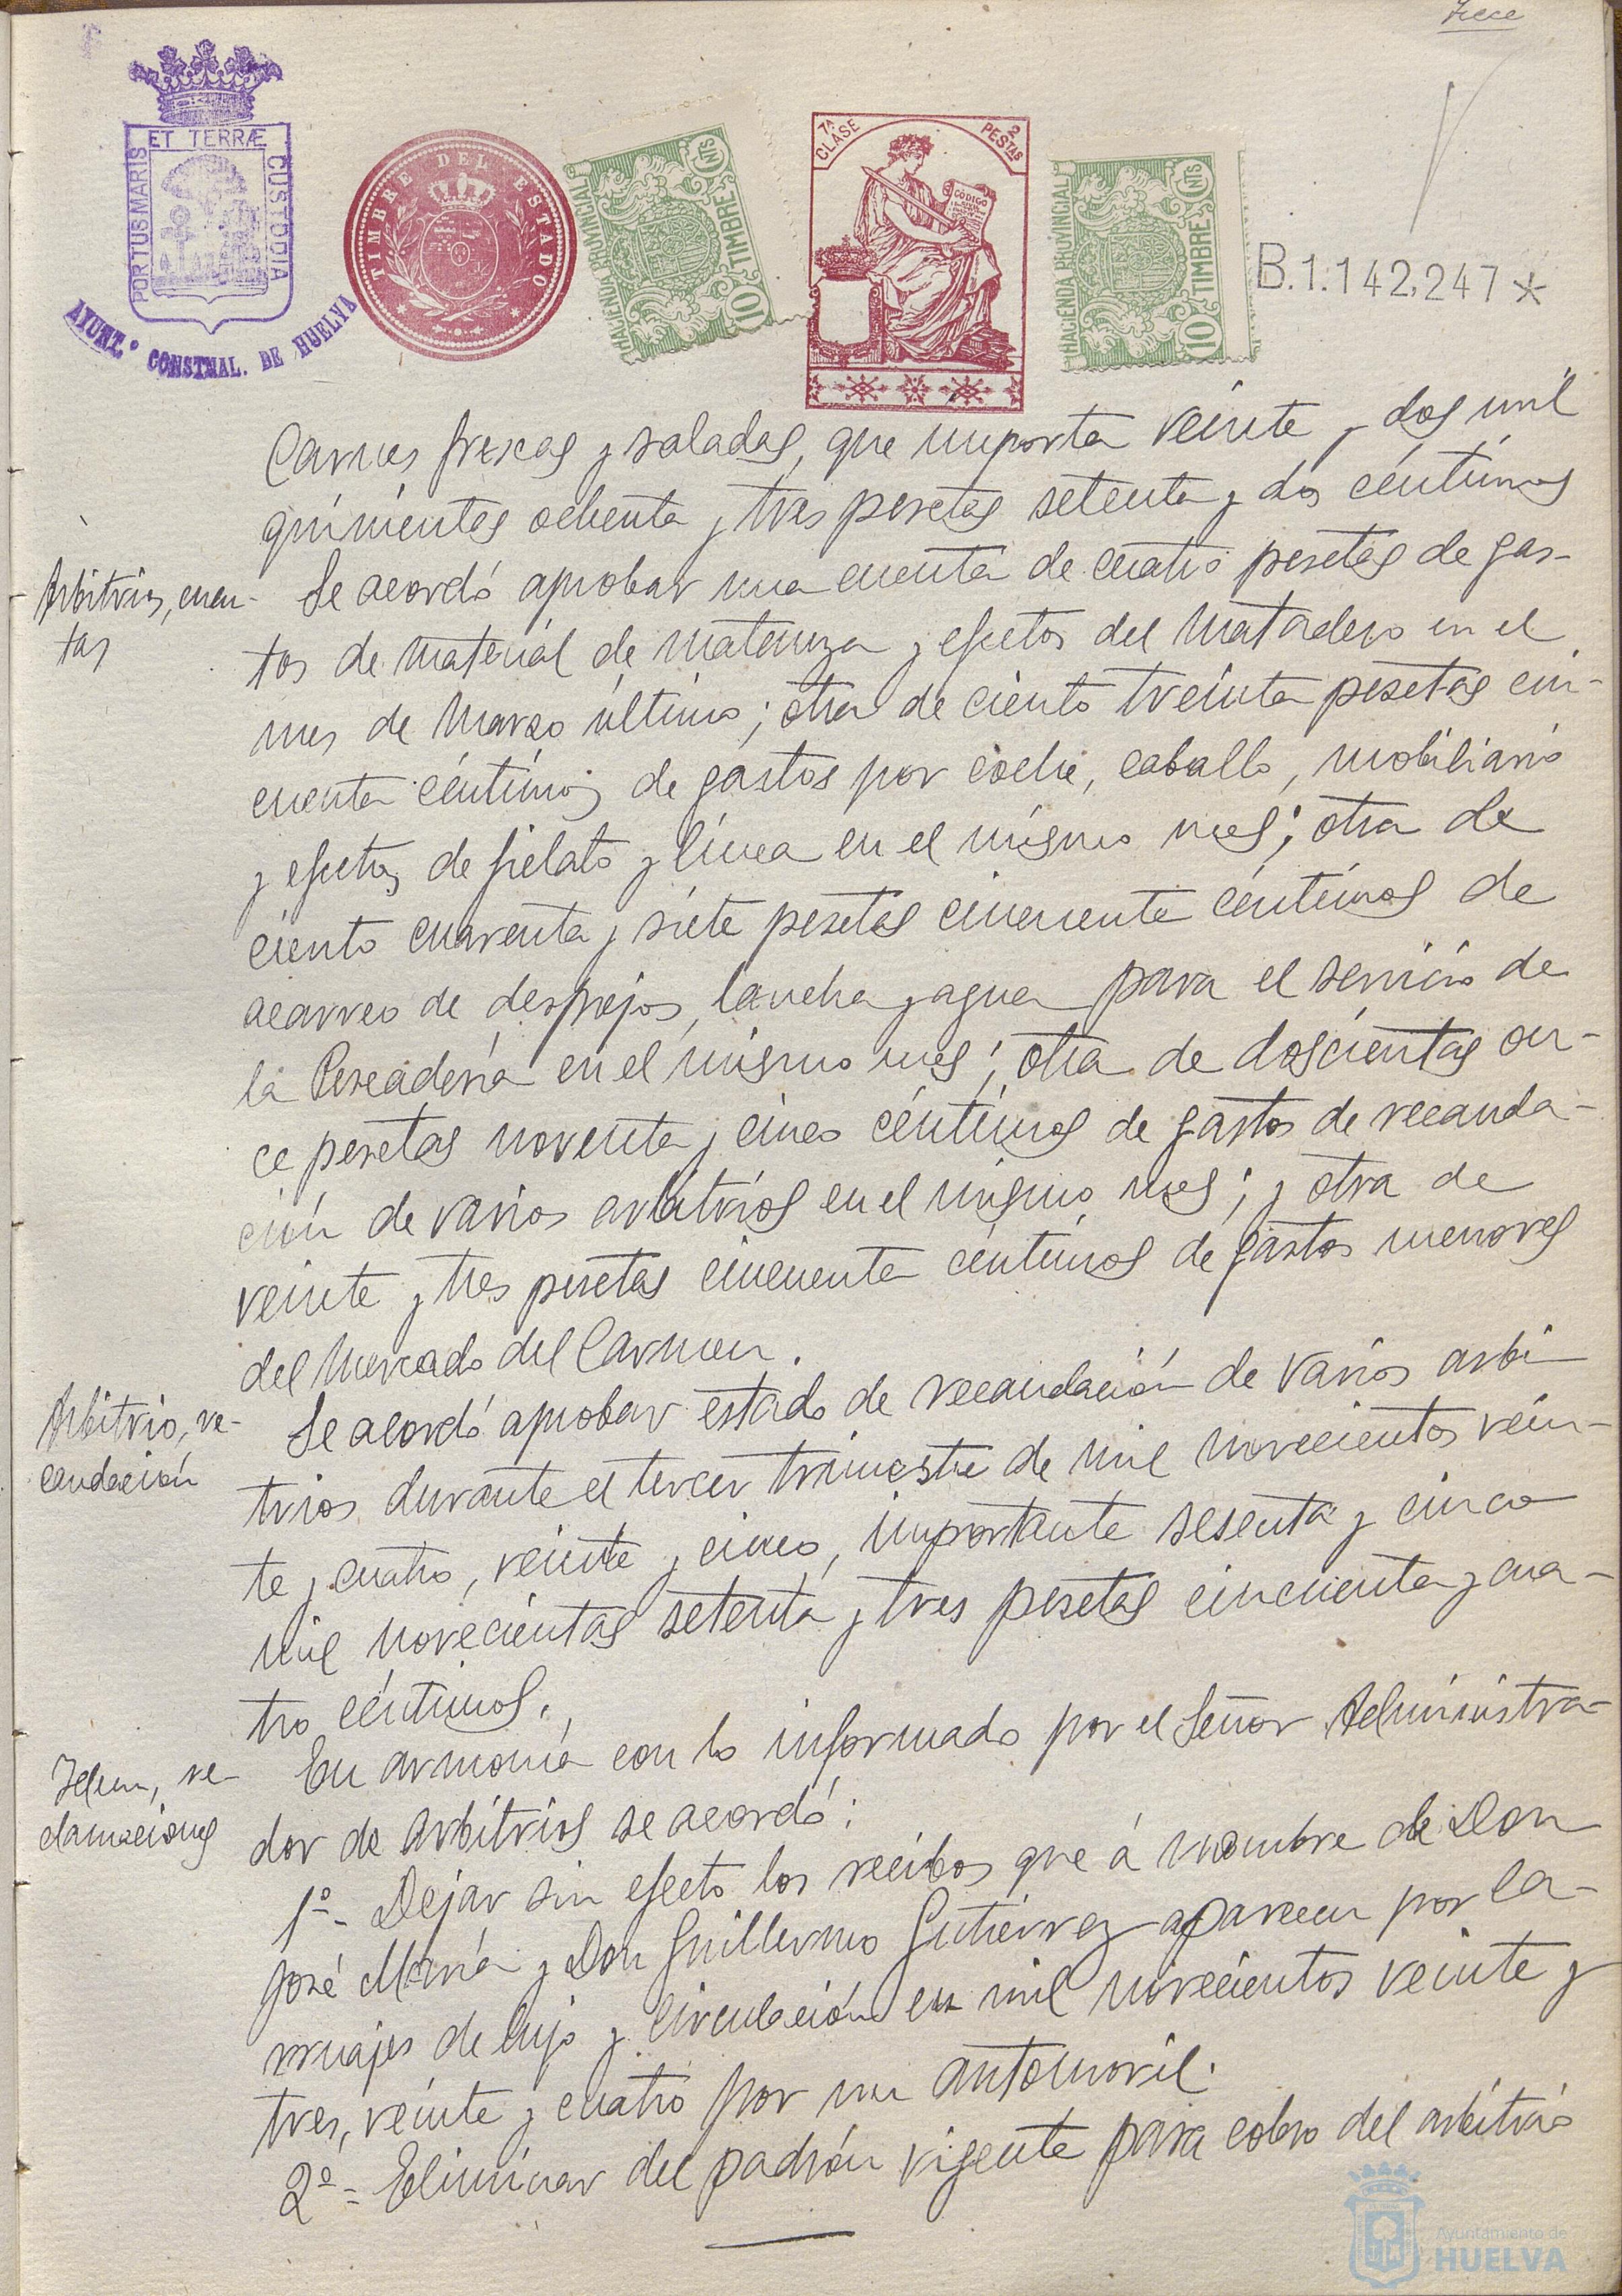 Trece
ET TERRÆ
PORTUS MARIS
CUSTODIA
AYUNT.º CONSTNAL. DE HUELVA
TIMBRE DEL ESTADO
HACIENDA PROVINCIAL
TIMBRE
10 CNTS
7ª CLASE
2 PESTAS
CODIGO
HACIENDA PROVINCIAL
TIMBRE
10 CNTS
B.1.142,247*
Carnes frescas y saladas, que importa veinte y dos mil
quinientas ochenta y tres pesetas setenta y dos céntimos
Arbitrios, cuen-
tas
Se acordó aprobar una cuenta de cuatro pesetas de gas-
tos de material de matanza y efectos del Matadero en el
mes de Marzo último; otra de ciento treinta pesetas cin-
cuenta céntimos de gastos por coche, caballo, mobiliario
y efectos de fielato y línea en el mismo mes; otra de
ciento cuarenta y siete pesetas cincuenta céntimos de
acarreo de despojos, lancha y agua para el servicio de
la Pescadería en el mismo mes; otra de doscientas on-
ce pesetas noventa y cinco céntimos de gastos de recauda-
ción de varios arbitrios en el mismo mes; y otra de
veinte y tres pesetas cincuenta céntimos de gastos menores
del Mercado del Carmen.
Arbitrio, re-
caudación
Se acordó aprobar estado de recaudación de varios arbi-
trios durante el tercer trimestre de mil novecientos vein-
te y cuatro, veinte y cinco, importante sesenta y cinco
mil novecientas setenta y tres pesetas cincuenta y cua-
tro céntimos.
Idem, re-
clamaciones
En armonía con lo informado por el Señor Administra-
dor de arbitrios se acordó:
1º- Dejar sin efecto los recibos que á nombre de Don
José María y Don Guillermo Gutiérrez aparecen por ca-
rruajes de lujo y circulación en mil novecientos veinte y
tres, veinte y cuatro por un automovil.
2º= Eliminar del padrón vigente para cobro del arbitrio
Ayuntamiento de
HUELVA